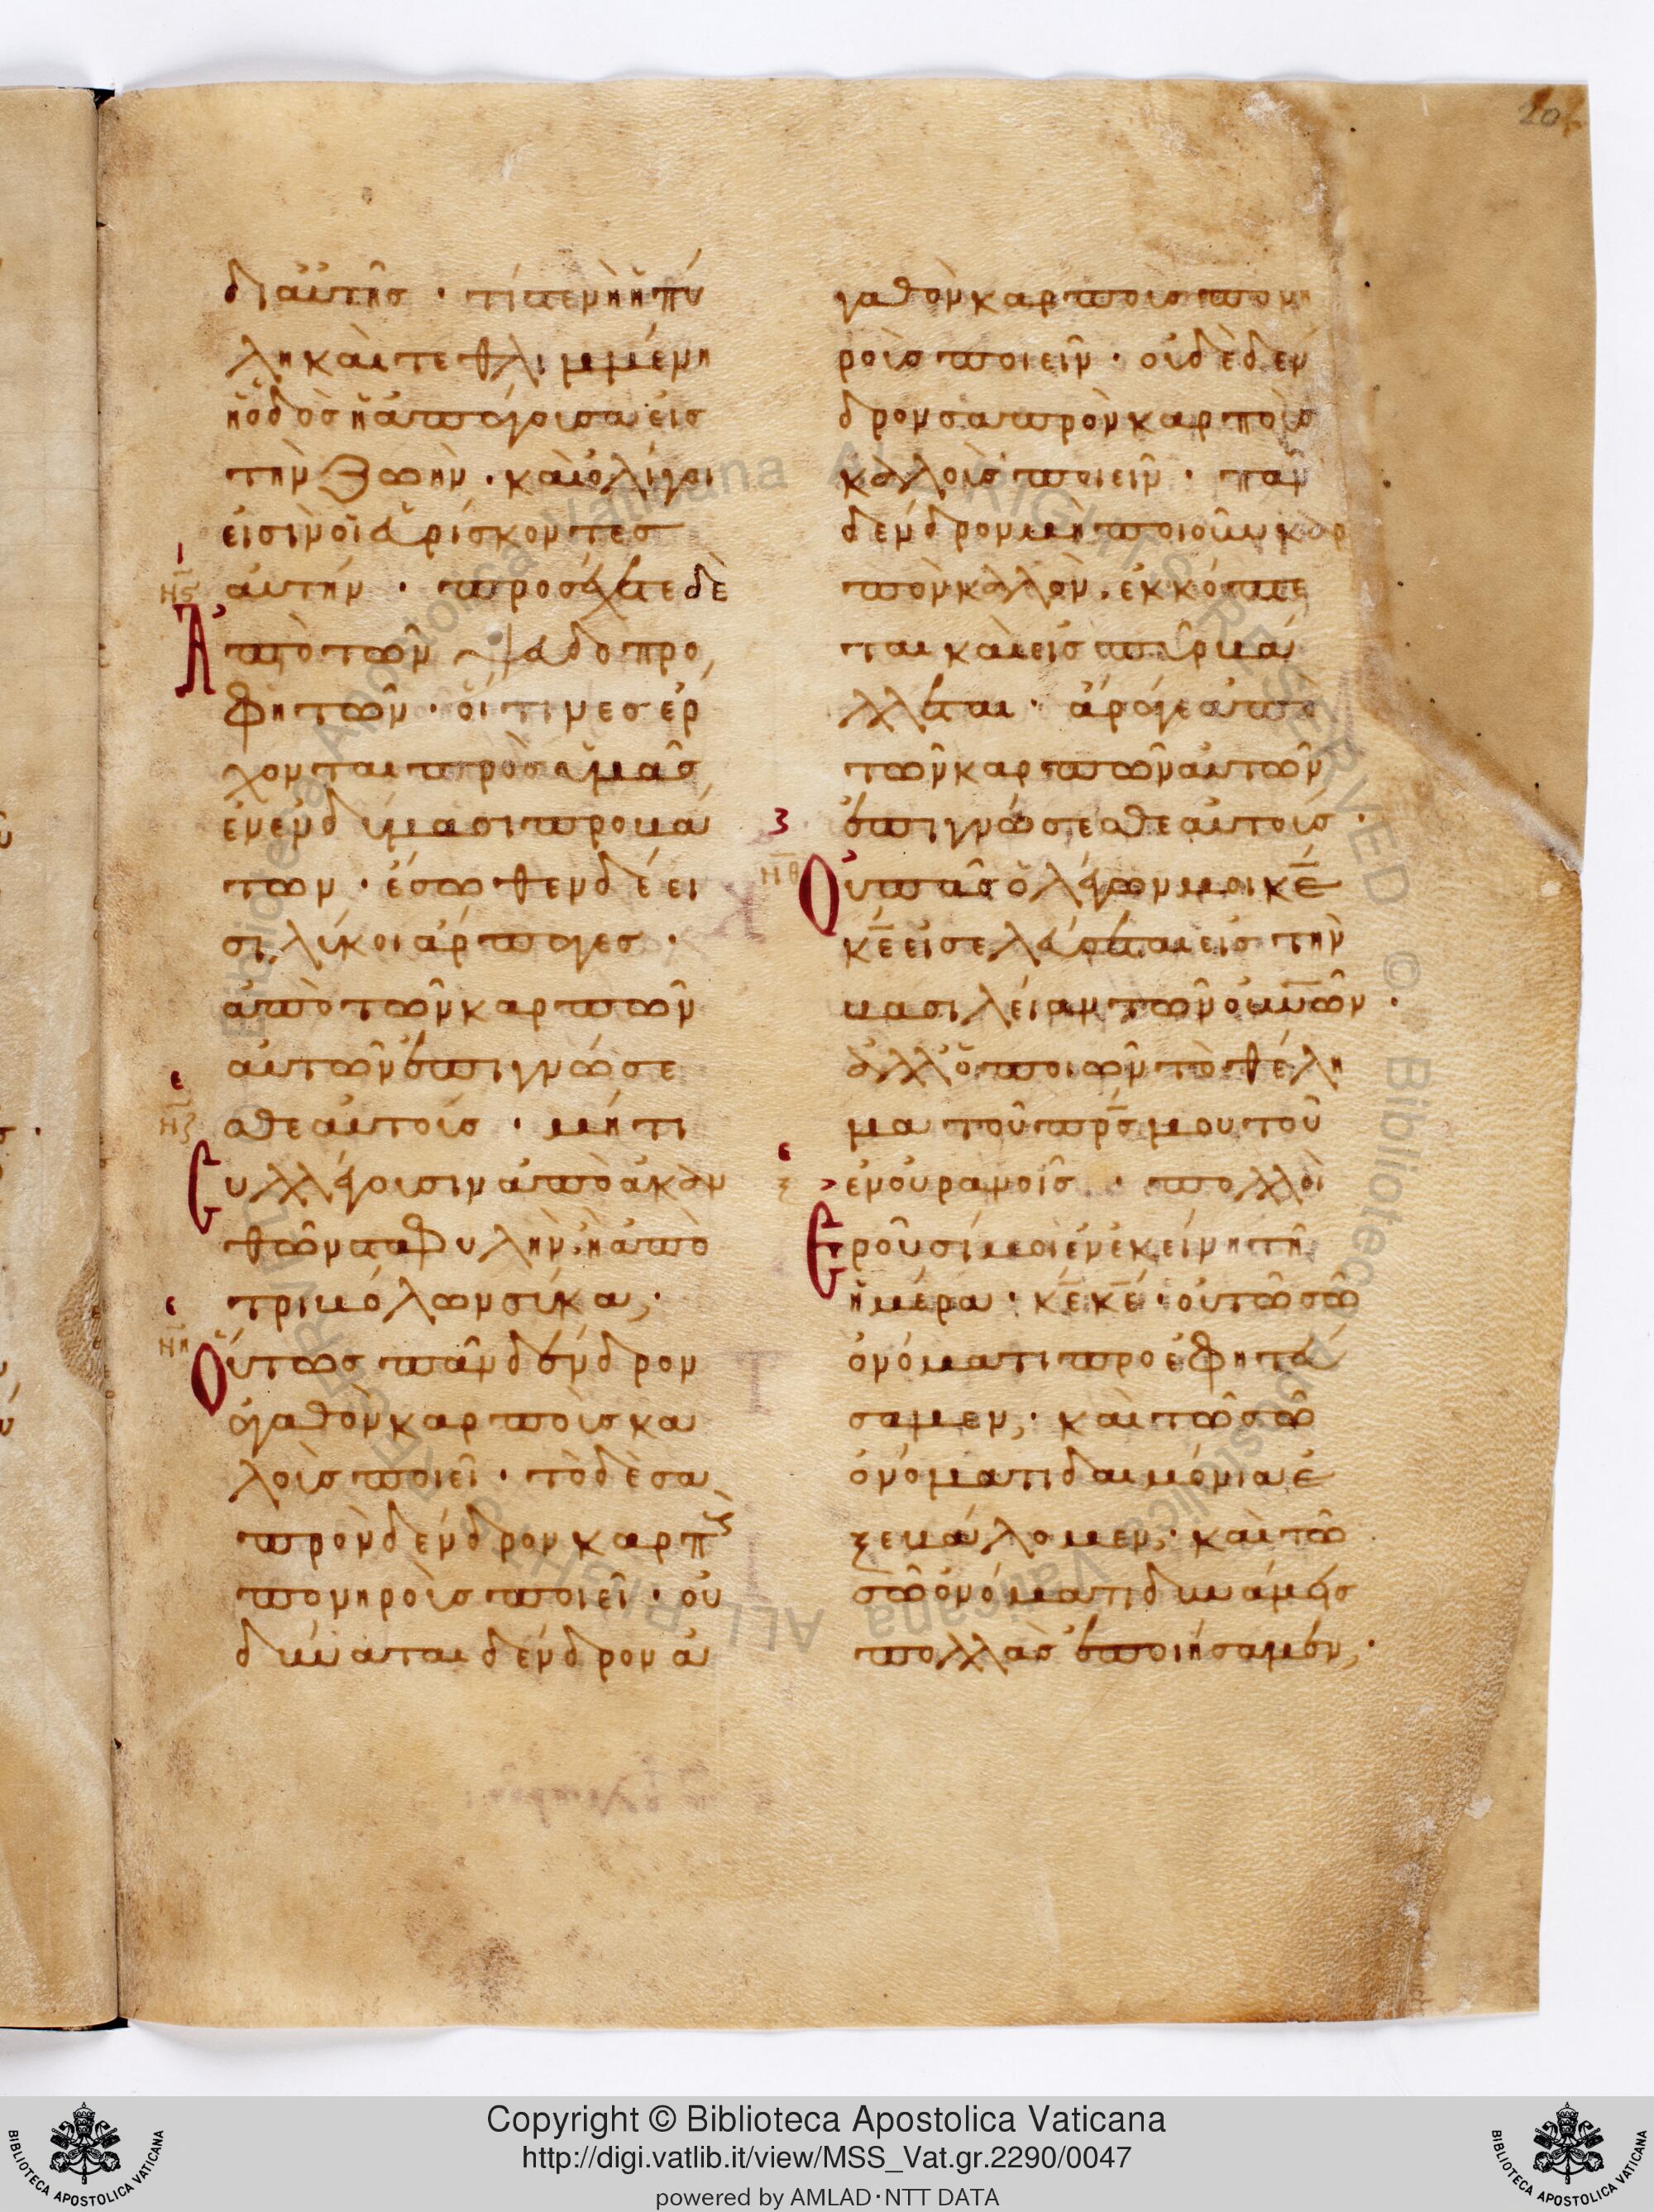 δι αὐτῆς · τί στενὴ ἡ πύ
λη καὶ τεθλιμμένη
ἡ ὁδὸς ἡ ἀπάγουσα εἰς
τὴν ζωὴν · καὶ ὀλίγοι
εἰσὶν οἱ εὑρίσκοντες
αὐτήν · προσέχετε δὲ
ἀπὸ τῶν ψευδοπρο
φητῶν · οἵτινες ἔρ
χονται πρὸς ὑμᾶς
ἐν ἐνδύμασι προβά
των · ἔσωθεν δέ εἰ
σι λύκοι ἅρπαγες ·
ἀπὸ τῶν καρπῶν
αὐτῶν ἐπιγνώσε
σθε αὐτούς · μήτι
Συλλέγουσιν ἀπὸ ἀκαν
θῶν σταφυλὴν · ἢ ἀπὸ
τριβόλων σύκα ·
Οὕτως πᾶν δένδρον
ἀγαθὸν καρποὺς κα
λοὺς ποιεῖ · τὸ δὲ σα
πρὸν δένδρον καρπ
πονηροὺς ποιεῖ · οὐ
δύναται δένδρον ἀ
γαθὸν καρποὺς πονη
ροὺς ποιεῖν · οὐδὲ δέν
δρον σαπρὸν καρποὺς
καλοὺς ποιεῖν · πᾶν
δένδρον μὴ ποιοῦν καρ
πὸν καλὸν · ἐκκόπτε
ται καὶ εἰς πῦρ βά
λλεται · ἄραγε ἀπὸ
τῶν καρπῶν αὐτῶν
ἐπιγνώσεσθε αὐτούς ·
Οὐ πᾶς ὁ λέγων μοι κ̅ε̅
κ̅ε̅ εἰσελεύσεται εἰς τὴν
βασιλείαν τῶν ο̅υ̅ν̅ῶν ·
ἀλλ ὁ ποιῶν τὸ θέλη
μα τοῦ π̅ρ̅ς̅ μου τοῦ
ἐν οὐρανοῖς · πολλοὶ
Ἐροῦσί μοι ἐν ἐκείνη τῆ
ἡμέρα · κ̅ε̅ κ̅ε̅ · οὐ τῶ σῶ
ὀνόματι προεφητεύ
σαμεν · καὶ τῶ σῶ
ὀνόματι δαιμόνια ἐ
ξεβάλομεν · καὶ τῶ
σῶ ὀνόματι δυνάμεις
πολλὰς ἐποιήσαμεν ·
Copyright © Biblioteca Apostolica Vaticana
http://digi.vatlib.it/view/MSS_Vat.gr.2290/0047
powered by AMLAD·NTT DATA
BIBLIOTECA APOSTOLICA VATICANA
BIBLIOTECA APOSTOLICA VATICANA